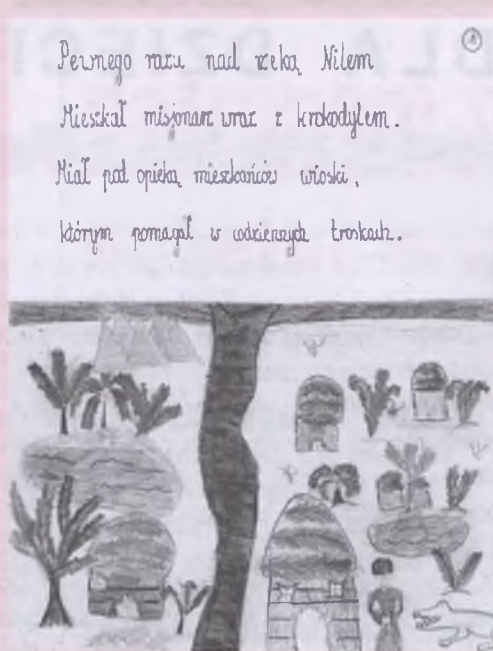 1
Pewnego razu nad rzeką Nilem
Mieszkał misjonarz wraz z krokodylem.
Miał pod opieką mieszkańców wioski,
którym pomagał w codziennych troskach.